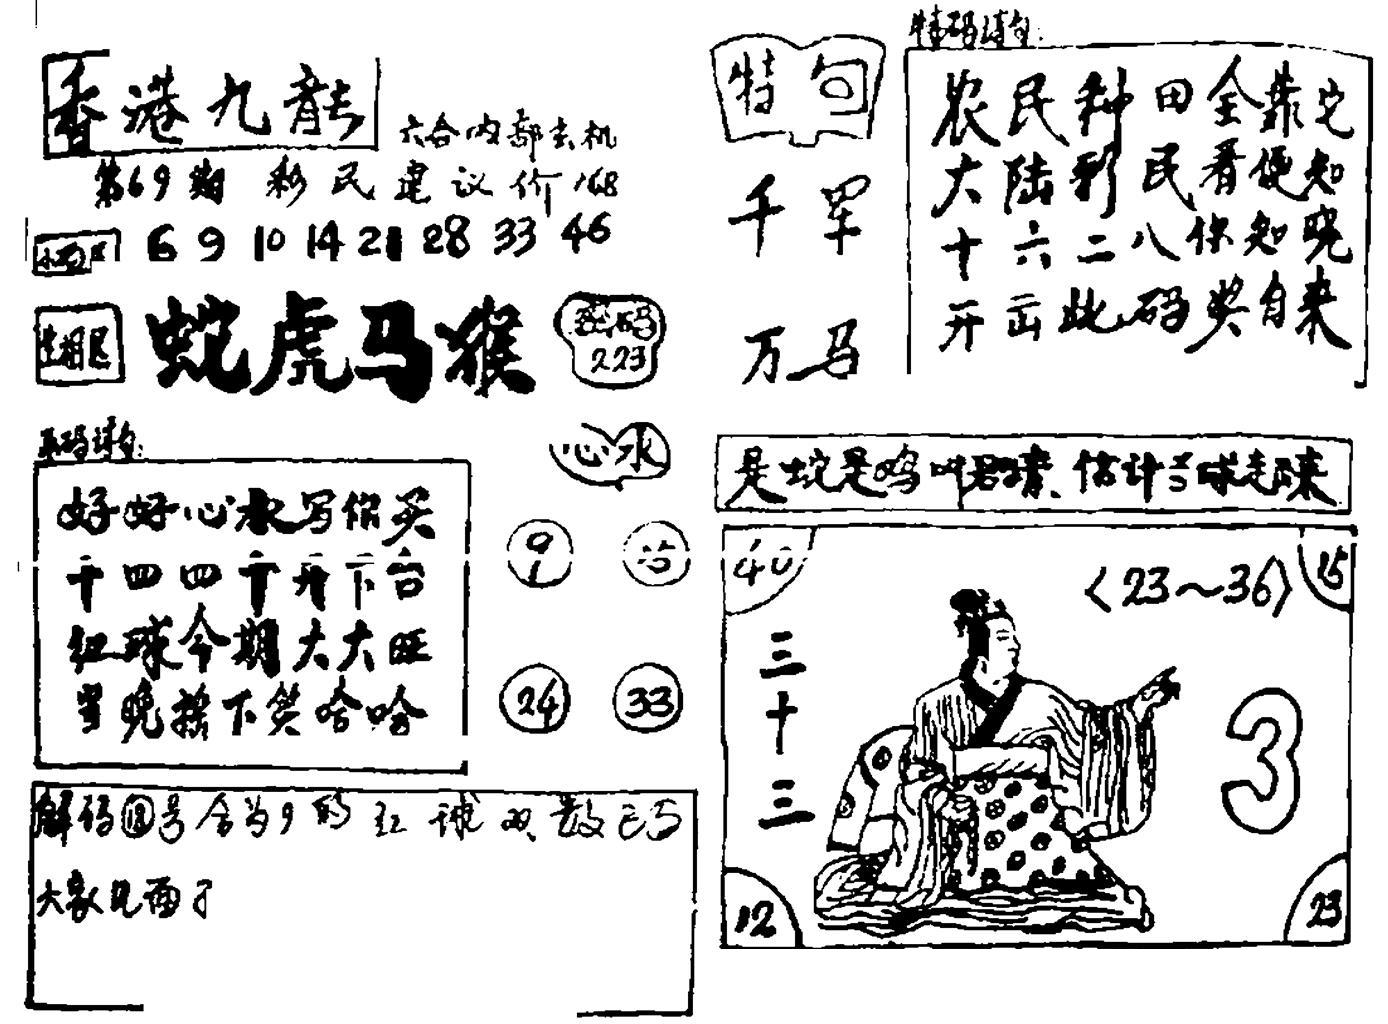 香港九龍
六合内部玄机
第69期 彩民建议价168
6 9 10 14 21 28 33 46
生相区
蛇虎马猴
密码
223
平码诗句:
好好心水写你买
十四四十开下台
红球今期大大旺
当晚摇下笑哈哈
心水
9
24 33
解码 号合为9的红球双数已与
大家见面了
特句
千军
万马
特码诗句:
农民种田全靠它
大陆彩民看便知
十六二八你知晓
开出此码奖自来
是蛇是鸡 估计
40 〈23～36〉 15
三十三
3
12 23